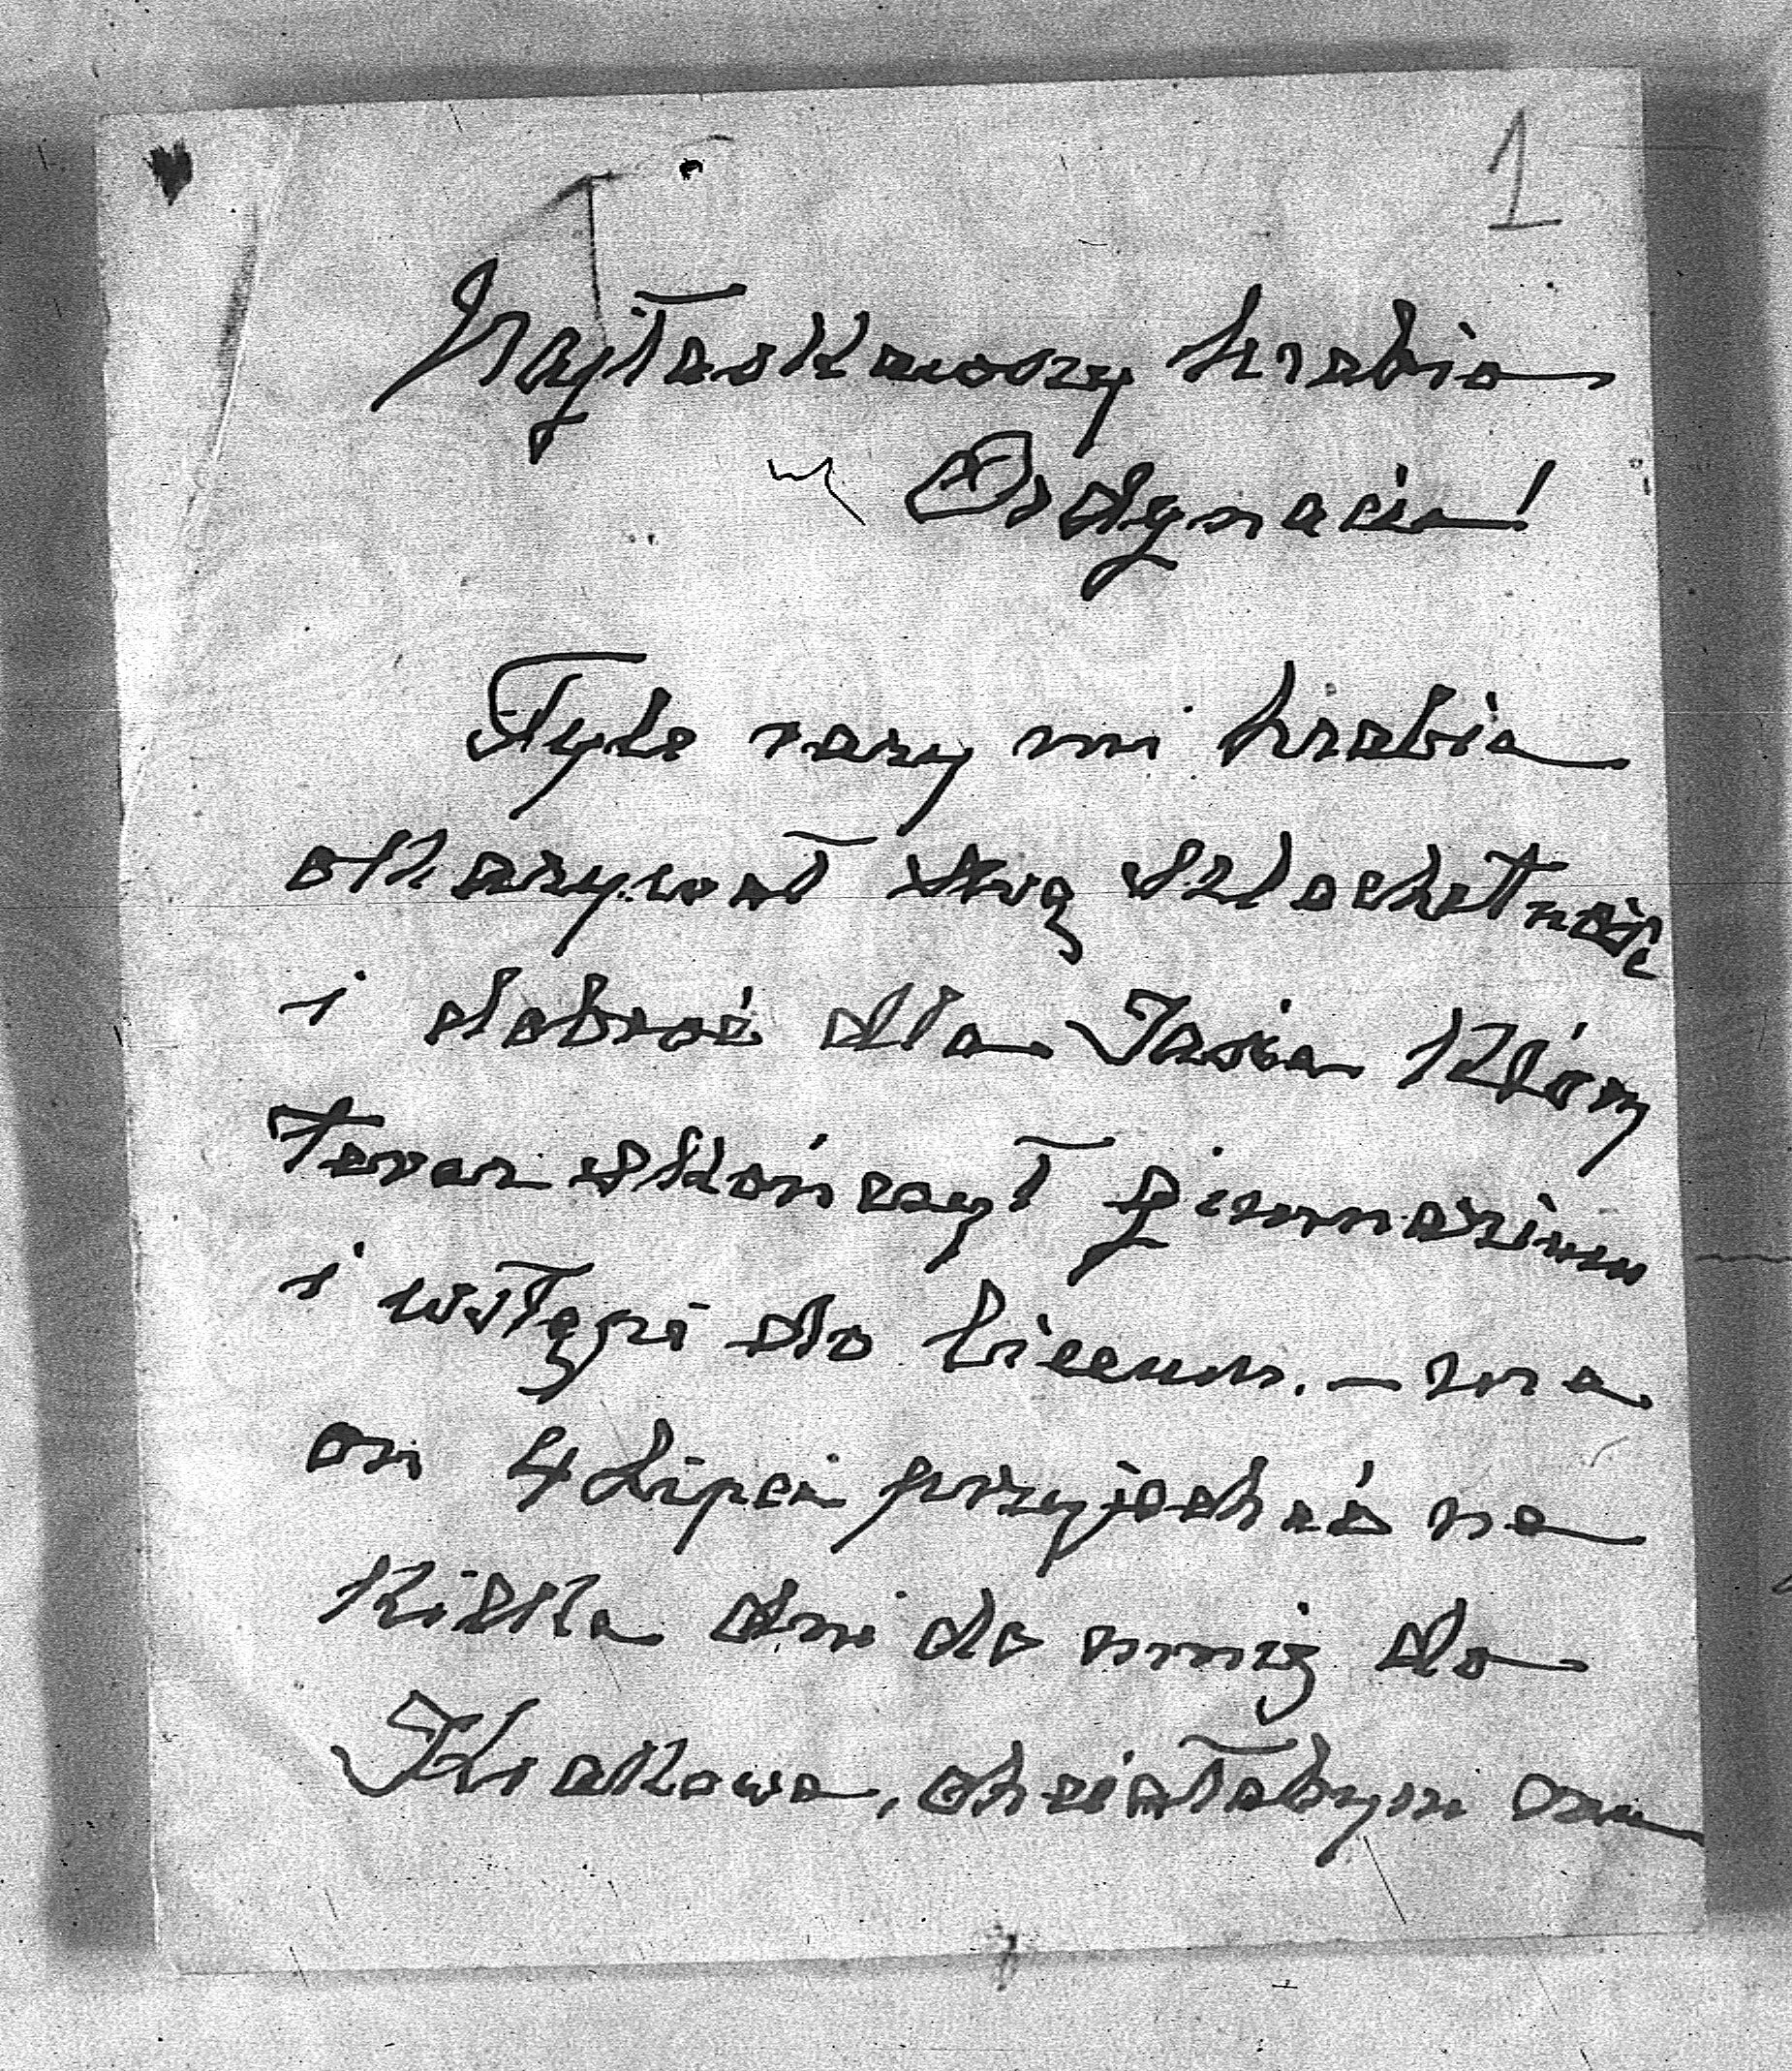 1
Najłaskawszy hrabio
Ordynacie!
Tyle razy mi hrabia
okazywał swą szlachetność
i dobroć dla Jasia który
teraz skończył gimnazium
i wstąpi do liceum. – ma
on 4 Lipca przyjechać na
kilka dni do mnię do
Krakowa, chciałabym mu